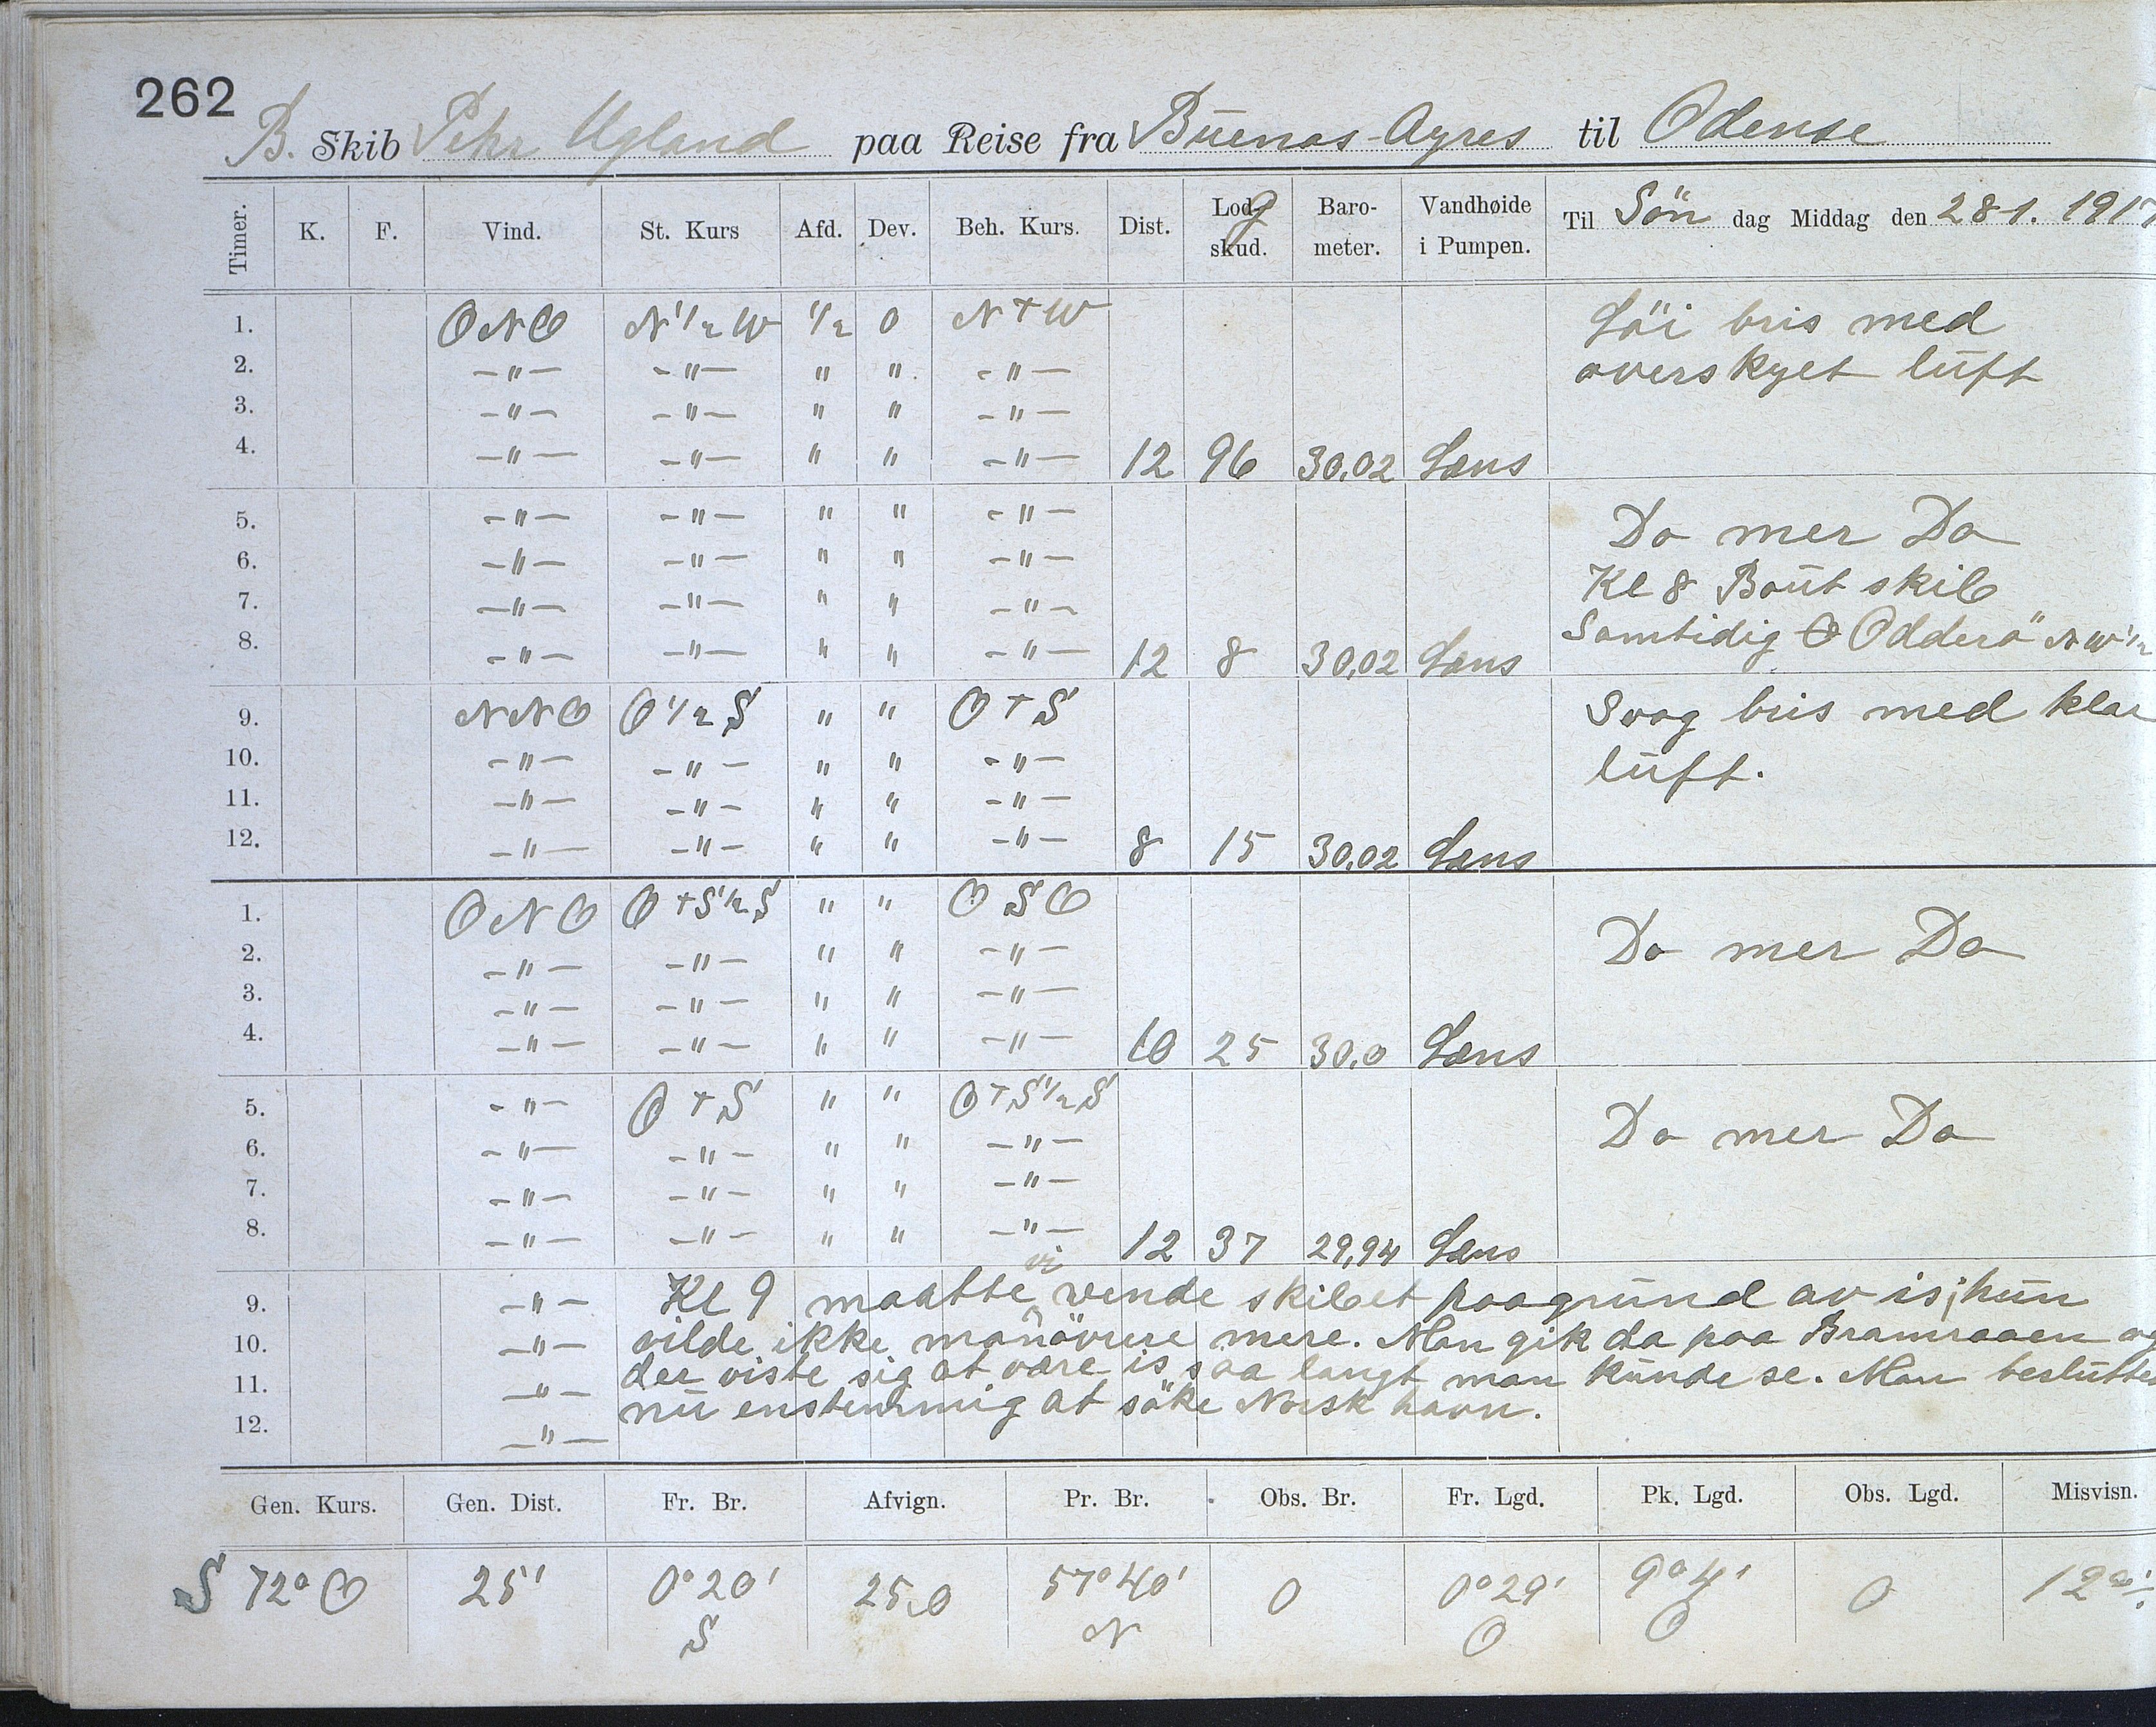 262
B. Skib Pehr Ugland paa Reise fra Buenos-Ayres til Odense
Timer. K. F. Vind. St. Kurs Afd. Dev. Beh. Kurs. Dist. Log skud. Baro-meter. Vandhøide i Pumpen. Til Sön dag Middag den 28 1. 1917
1. ONO N 1/2 W 1/2 0 N + W Löi bris med
2. -"- -"- " " -"- overskyet lüft
3. -"- -"- " " -"-
4. -"- -"- " " -"- 12 96 30,02 Læns
5. -"- -"- " " -"- Do mer Do
6. -"- -"- " " -"- Kl 8 Boüt skib
7. -"- -"- " " -"- Samtidig Odderö NW 1/2
8. -"- -"- " " -"- 12 8 30,02 Læns
9. NNO O 1/2 S " " O + S Svag bris med klar
10. -"- -"- " " -"- lüft.
11. -"- -"- " " -"-
12. -"- -"- " " -"- 8 15 30,02 Læns
1. ONO O + S 1/2 S " " OSO
2. -"- -"- " " -"- Do mer Do
3. -"- -"- " " -"-
4. -"- -"- " " -"- 10 25 30,0 Læns
5. -"- O + S " " O + S 1/2 S
6. -"- -"- " " -"- Do mer Do
7. -"- -"- " " -"-
8. -"- -"- " " -"- 12 37 29,94 Læns
9. -"- Kl 9 maatte vi vende skibet paagründ av is; hün
10. -"- vilde ikke manövrere mere. Man gik da paa Bramraaen og
11. -"- der viste sig at være is saa langt man künde se. Man beslüttet
12. -"- nü enstemmig at söke Norsk havn.
Gen. Kurs. Gen. Dist. Fr. Br. Afvign. Pr. Br. Obs. Br. Fr. Lgd. Pk. Lgd. Obs. Lgd. Misvisn.
S 72° O 25' 0° 20' S 25,0 57° 40' N 0 0° 29' O 9° 4' O 0 12°